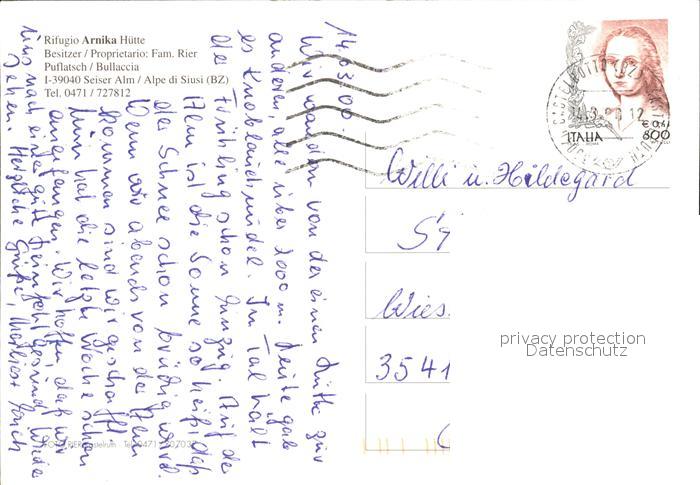 Rifugio Arnika Hütte
Besitzer / Proprietario: Fam. Rier
Puflatsch / Bullaccia
I-39040 Seiser Alm / Alpe di Siusi (BZ)
Tel. 0471 / 727812
14.03.00
Wir wandern von der einen Hütte zur
anderen, alle über 2000 m. Heute gab
es Knoblauchnudel. Im Tal hält
der Frühling schon Einzug. Auf der
Alm ist die Sonne so heiß, daß
der Schnee schon brüchig wird.
Wenn wir abends von der Alm
kommen sind wir geschafft.
Nun hat die letzte Woche schon
angefangen. Wir hoffen, daß wir
uns nach gesund wieder
sehen. Herzliche Grüße,
ITALIA
€ 0,41
800
Willi u. Hildegard
St
Wies
3541
privacy protection
Datenschutz